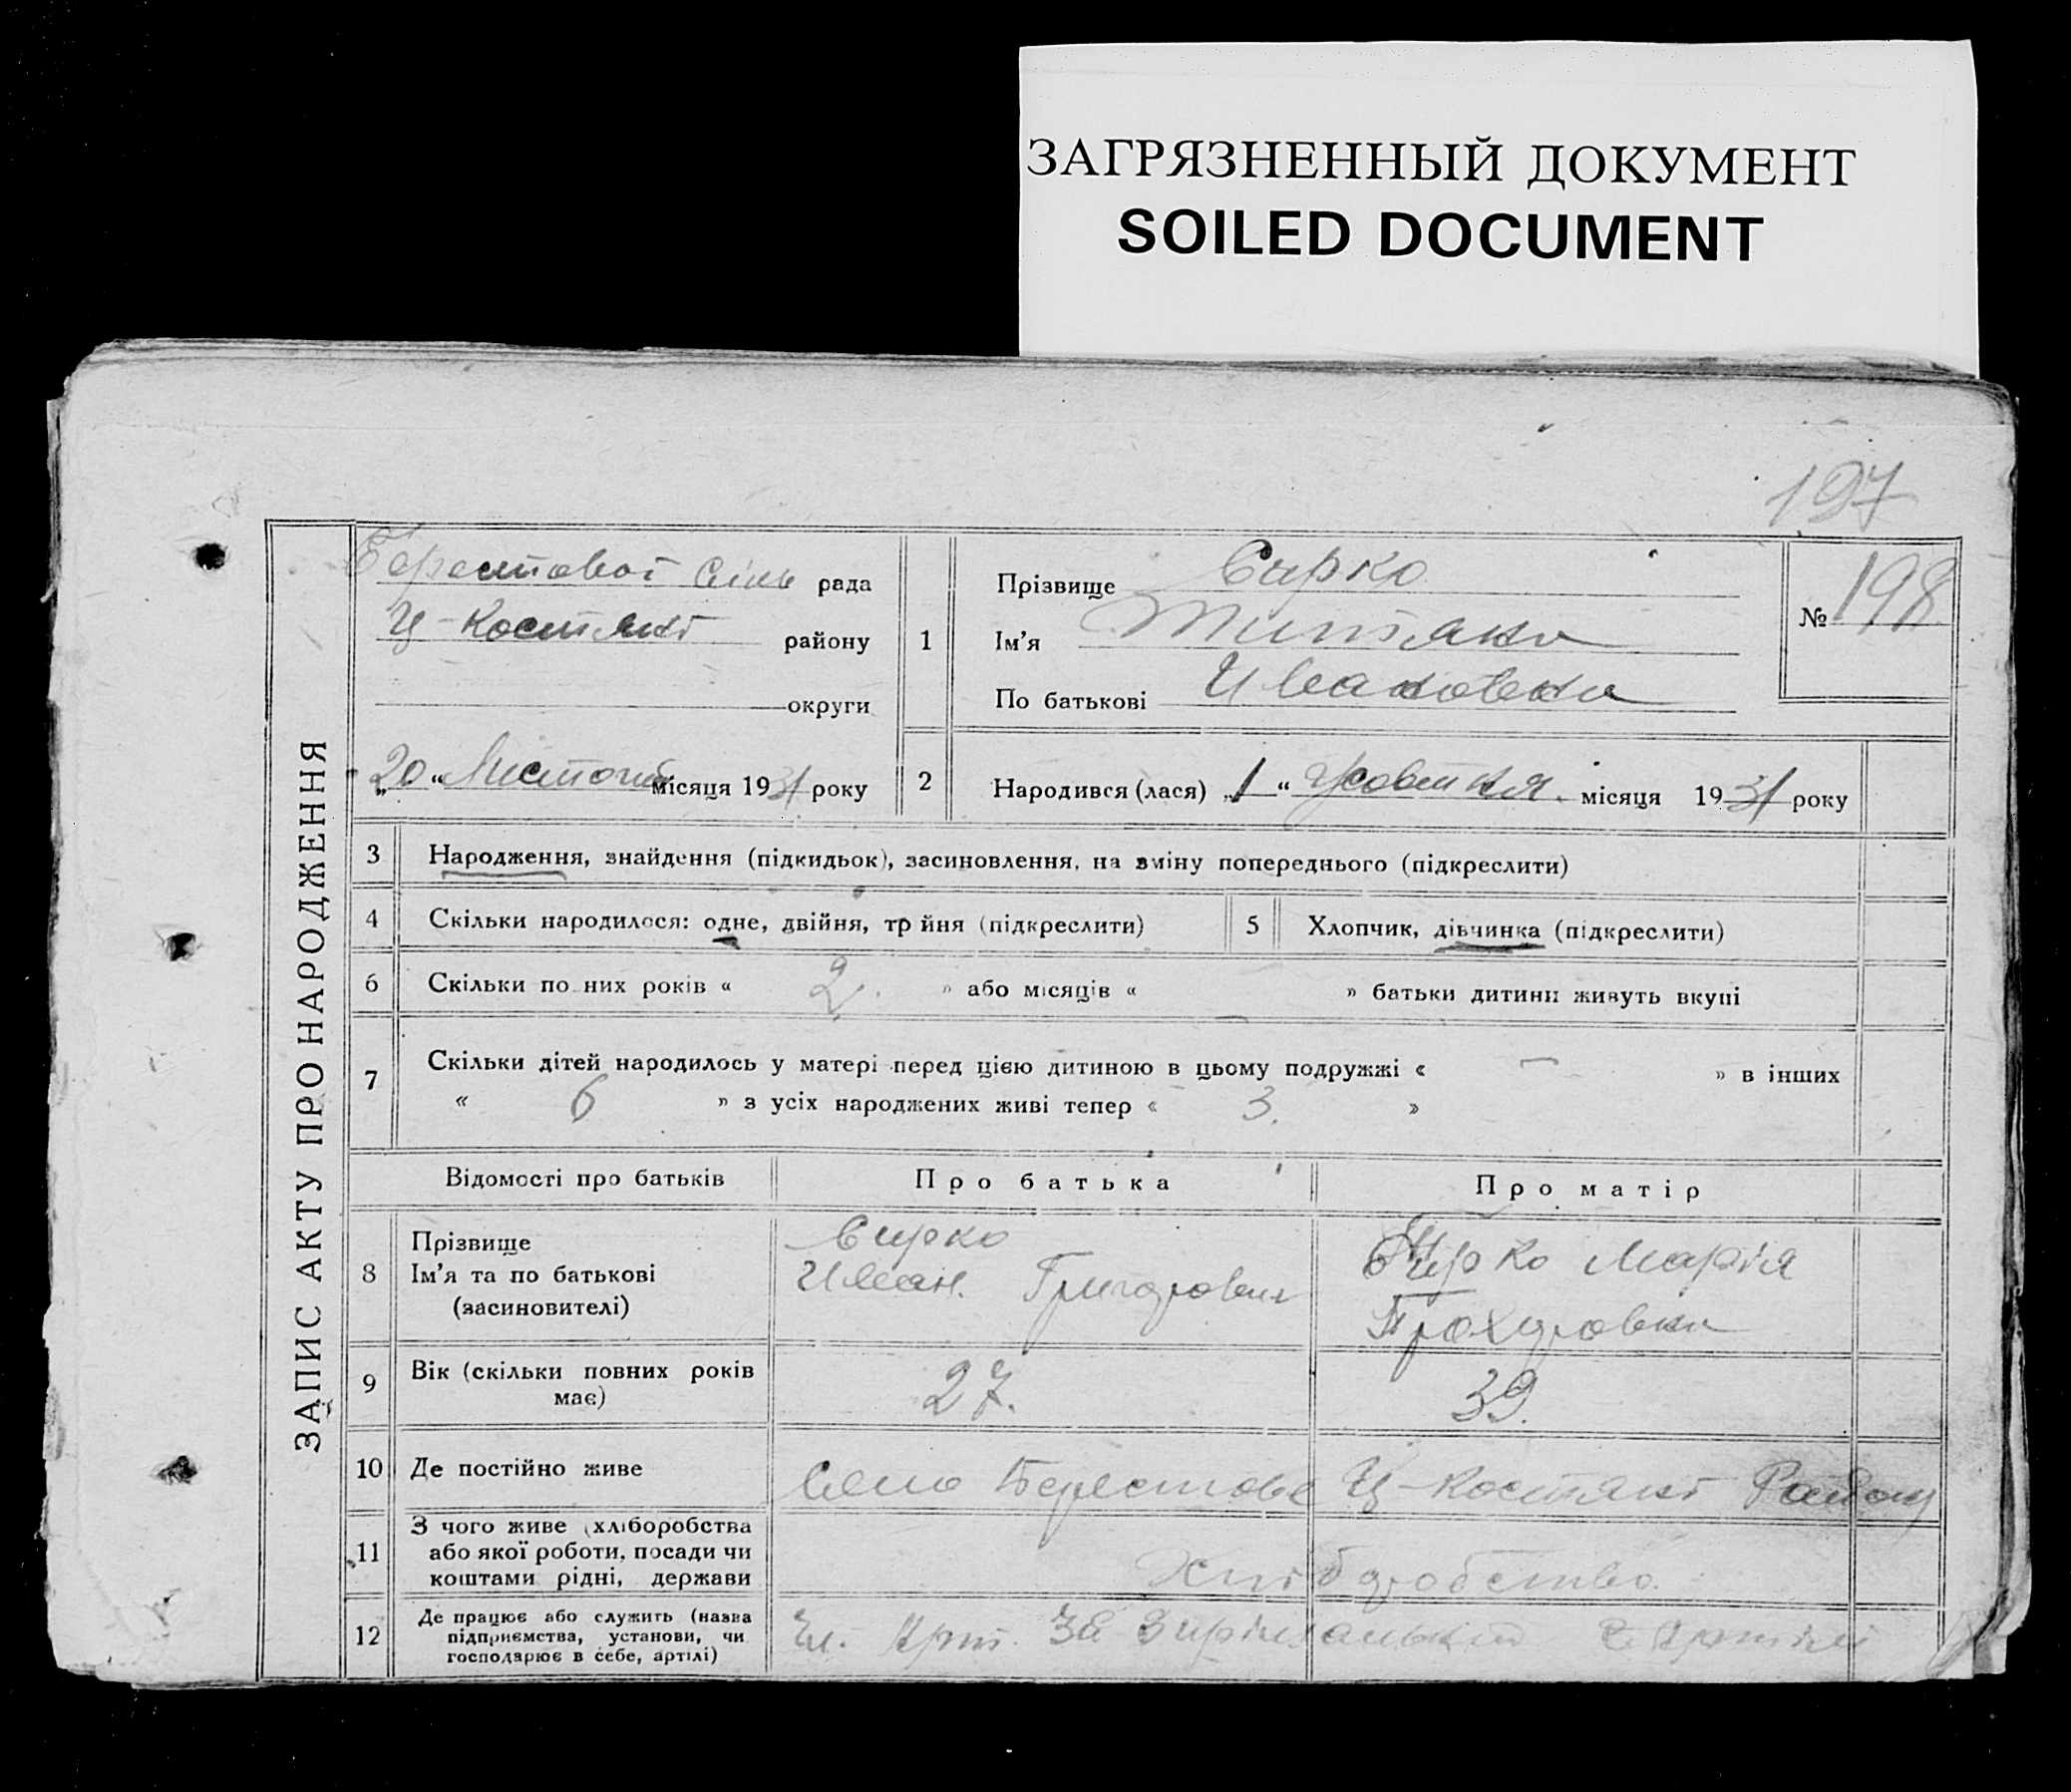 ЗАГРЯЗНЕННЫЙ ДОКУМЕНТ
SOILED DOCUMENT
197
ЗАПИС АКТУ ПРО НАРОДЖЕННЯ
Берестовоі Сіль рада
Ц-Костянт району
округи
"20" місяця 1931 року
1
Прізвище Сирко
Ім'я
По батькові Ивановна
№ 198
2 Народився (лася) "1" Жовтня місяця 1931 року
3 Народження, знайдення (підкидьок), засиновлення, на зміну попереднього (підкреслити)
4 Скільки народилося: одне, двійня, тр йня (підкреслити)
5 Хлопчик, дівчинка (підкреслити)
6 Скільки по них років « 2. » або місяців « » батьки дитини живуть вкупі
7 Скільки дітей народилось у матері перед цією дитиною в цьому подружжі « — » в інших
« 6 » з усіх народжених живі тепер « 3. »
Відомості про батьків Про батька Про матір
8 Прізвище
Ім'я та по батькові
(засиновителі)
Сирко
Иван. Григорович
Сирко Марія
9 Вік (скільки повних років
має)
27.
39.
10 Де постійно живе Село Берестове Ц-Костянт Району
11 З чого живе (хліборобства
або якої роботи, посади чи
коштами рідні, держави
Хліборобство.
12 Де працює або служить (назва
підприємства, установи, чи
господарює в себе, артілі)
Чл. Арт.